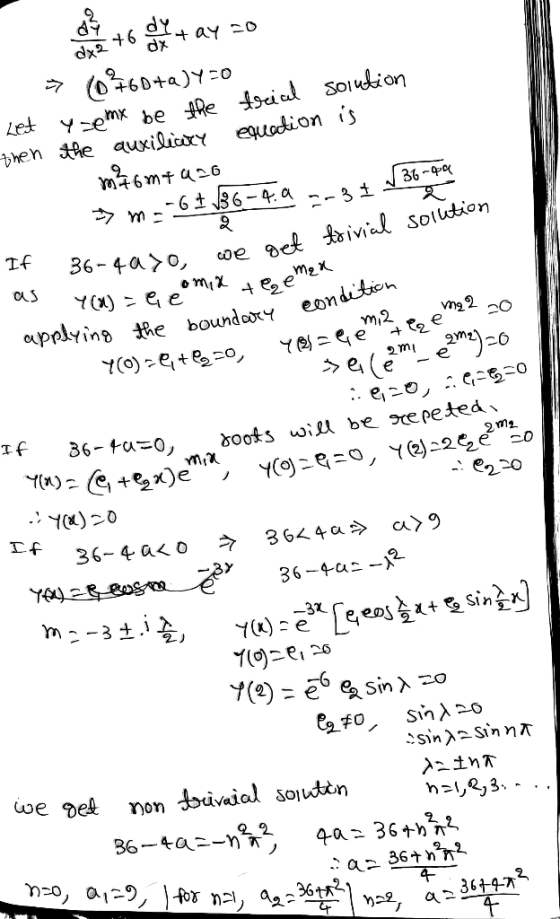 d²y/dx² + 6 dy/dx + ay = 0
⇒ (D²+6D+a)y=0
Let y=e^mx be the trial solution
then the auxiliary equation is
m²+6m+a=0
⇒ m = (-6 ± √(36-4.a))/2 = -3 ± √(36-4a)/2
If 36-4a>0, we get trivial solution
as y(x) = c₁e^m₁x + c₂e^m₂x
applying the boundary condition
y(0)=c₁+c₂=0, y(2)=c₁e^m₁2 + c₂e^m₂2 = 0
⇒ c₁(e^2m₁ - e^2m₂)=0
∴ c₁=0, ∴ c₁=c₂=0
If 36-4a=0, roots will be repeted.
y(x) = (c₁+c₂x)e^m₁x, y(0)=c₁=0, y(2)=2c₂e^2m₂=0
∴ y(x)=0 ∴ c₂=0
If 36-4a<0 ⇒ 36<4a ⇒ a>9
y(x) = c₁ cosm e^-3x 36-4a = -λ²
m = -3 ± i λ/2, y(x) = e^-3x [c₁cos λ/2 x + c₂ sin λ/2 x]
y(0)=c₁=0
y(2) = e^-6 c₂ sin λ = 0
c₂≠0, sin λ=0
∴ sin λ = sin nπ
λ = ±nπ
n=1,2,3....
we get non trivaial solution
36-4a=-n²π², 4a = 36+n²π²
∴ a = (36+n²π²)/4
n=0, a₁=9, | for n=1, a₂ = (36+π²)/4 | n=2, a = (36+4π²)/4